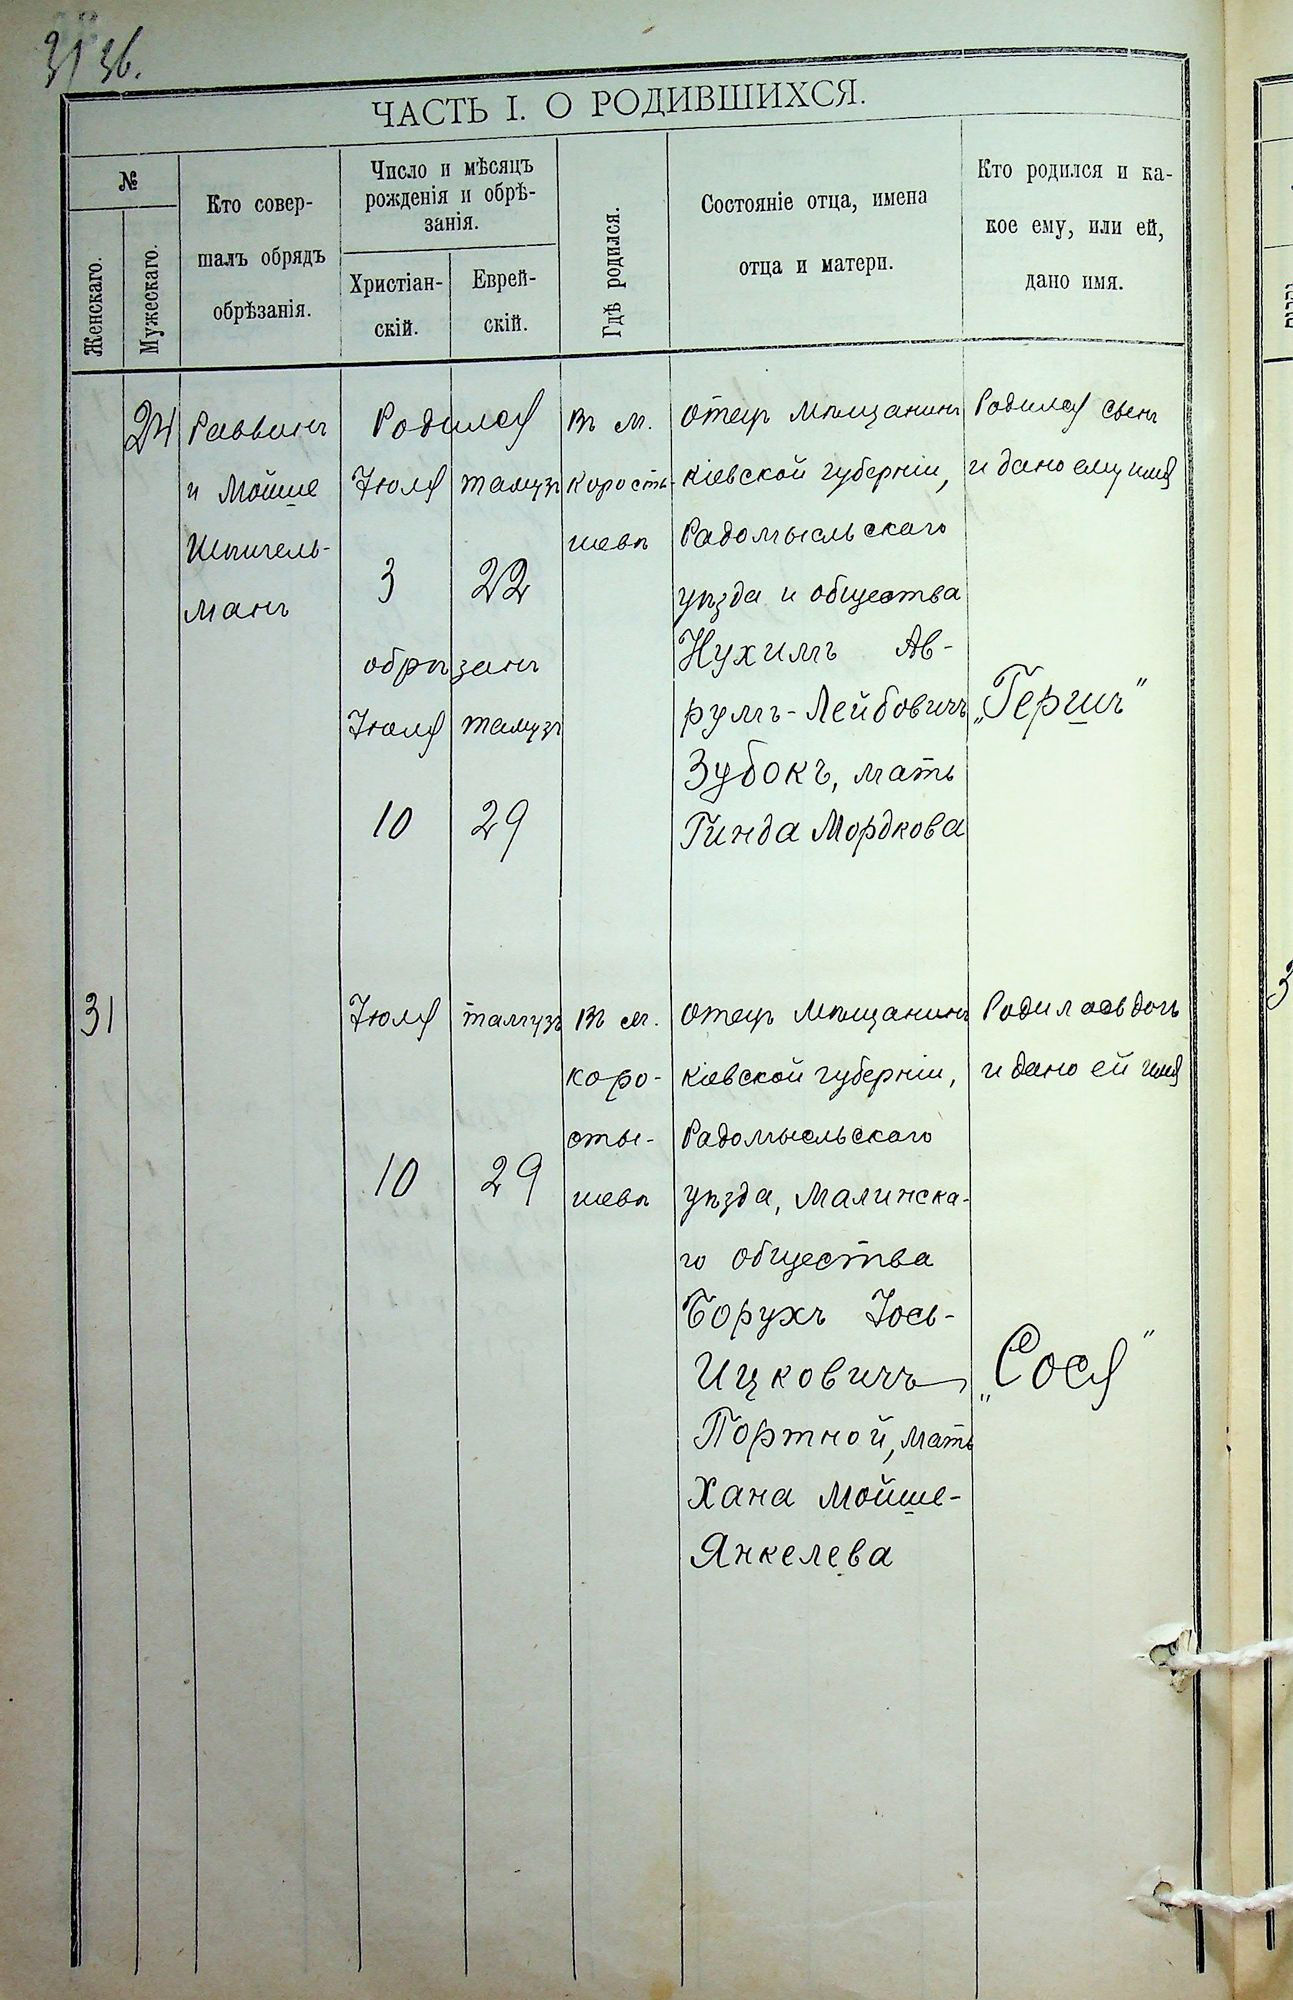 31 36.
ЧАСТЬ I. О РОДИВШИХСЯ.
№
Женскаго.
Мужескаго.
Кто совер-
шалъ обрядъ
обрѣзанія.
Число и мѣсяцъ
рожденія и обрѣ-
занія.
Христіан-
скій.
Еврей-
скій.
Гдѣ родился.
Состояніе отца, имена
отца и матери.
Кто родился и ка-
кое ему, или ей,
дано имя.
24
Раввинъ
и Мойше
Шпигель-
манъ
Родился
Іюля
Тамузъ
3
22
обрѣзанъ
Іюля
Тамузъ
10
29
Въ м.
Корости-
шевѣ
Отецъ Мѣщанинъ
Кіевской губерніи,
Радомысльскаго
уѣзда и общества
Нухимъ Ав-
румъ-Лейбовичъ
Зубокъ, мать
Гинда Мордкова
Родился сынъ
и дано ему имя
„Гершъ"
31
Іюля
Тамузъ
10
29
Въ м.
Коро-
сты-
шевѣ
Отецъ Мѣщанинъ
Кіевской губерніи,
Радомысльскаго
уѣзда, Малинска-
го общества
Борухъ Іось-
Ицковичъ
Портной, мать
Хана Мойше-
Янкелева
Родилась дочь
и дано ей имя
„Сося"